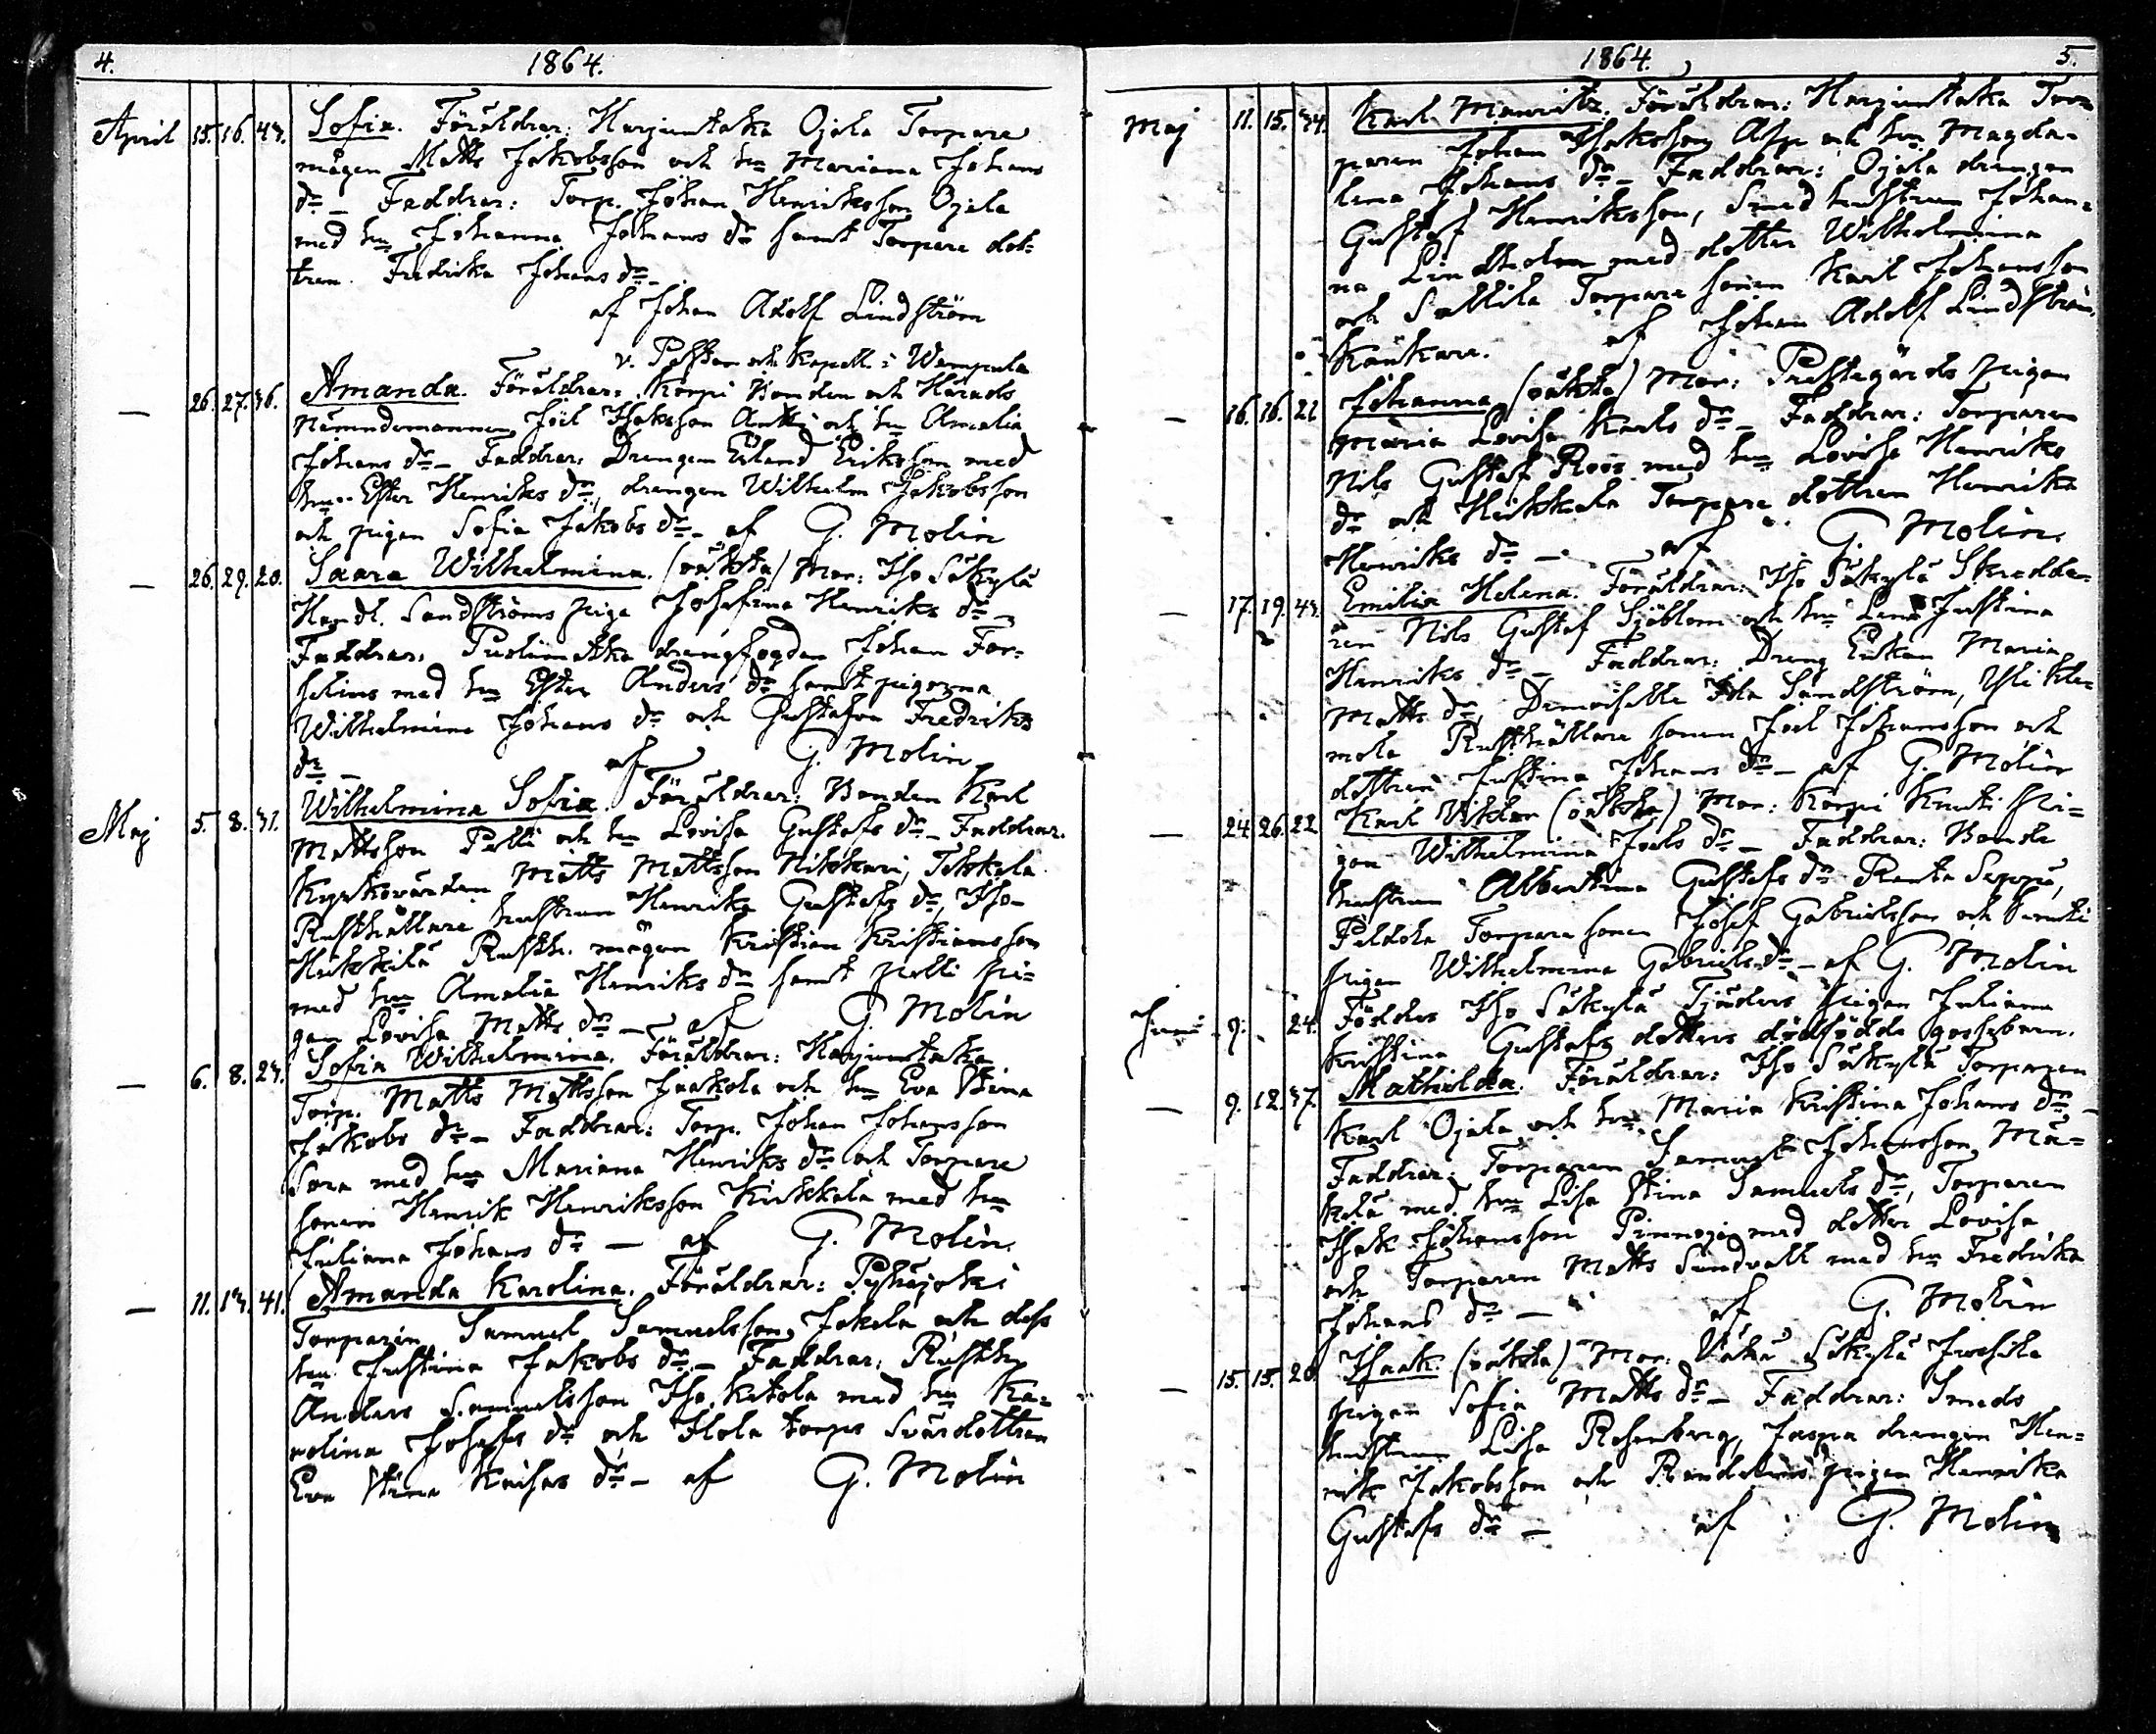 4. 1864.
April 15. 16. 43. Sofia. Föräldrar: Harjuntaka Ojala Torpare
mågen Matts Jakobsson och hu Mariana Johans
dr _ Faddrar: Torp. Johan Henriksson Ojala
med hu Johanna Johans dr samt Torpare dot-
tren Fredrika Johans dr _
af Johan Adolf Lindström
v. Pastor och Kapell. i Wampula
— 26. 27. 36. Amanda. Föräldrar: Korpi Bonden och Härads
nämndemannen Joël Isaksson Antti och hu Amalia
Johans dr _ Faddrar: Drengen Erland Eriksson med
hu Ester Henriks dr, drengen Wilhelm Jakobsson
och pigan Sofia Jakobs dr _ af G. Molin
— 26. 29. 20. Saara Wilhelmina. (oäkta) Mor: Iso Säkylä
Handl. Sandströms piga Josefina Henriks dr _
Faddrar: drengfogden Johan For-
selius med hu Ester Anders dr samt pigorna
Wilhelmina Johans dr och Gustafva Fredriks
dr _ af G. Molin
Maj 5. 8. 31. Wilhelmina Sofia. Föräldrar: Bonden Karl
Mattsson Pelli och hu Lovisa Gustafs dr _ Faddrar.
Kyrkovärden Matts Mattsson Nikkari,
Rusthållare hustrun Henrika Gustafs dr, Iso
Heikkilä Rusth. mågen Kristian Kristiansson
med hu Amalia Henriks dr samt Pelli pi-
gan Lovisa Matts dr _ af G. Molin
— 6. 8. 23. Sofia Wilhelmina. Föräldrar: Harjuntaka
Torp. Matts Mattsson Jaakola och hu Eva Stina
Jakobs dr _ Faddrar: Torp. Johan Johansson
Sora med hu Mariana Henriks dr och Torpare
sonen Henrik Henriksson Kirkkala med hu
Juliana Johans dr — af G. Molin.
— 11. 13. 41. Amanda Karolina. Föräldrar: Pyhäjoki
Torparen Samuel Samuelsson Jokela och dess
hu Justina Jakobs dr _ Faddrar: Rusth.
Anders Samuelsson Iso Ketola med hu Ka-
rolina Josefs dr och Ilola torps Svärdottren
Eva Stina Kaisas dr _ af G. Molin
1864. 5.
Maj 11. 15. 34. Karl Mauritz. Föräldrar: Harjuntaka Tor-
paren Johan Isaksson Asp och hu Magda-
lena Johans dr _ Faddrar: Ojala drengen
Gustaf Henriksson, Smed hustrun Johan-
na Lindholm med dotter Wilhelmina
och Sallila Torpare sonen Karl Johansson
Kankare. af Johan Adolf Lindström,
— 16. 16. 22 Johanna (oäkta) Mor: Prestegårds pigan
Maria Lovisa Karls dr _ Faddrar: Torparen
Nils Gustaf Roos med hu Lovisa Henriks
dr och Heikkala Torpare dottren Henrika
Henriks dr — af G. Molin.
— 17. 19. 43. Emilia Helena. Föräldrar: Iso Säkylä Skredda-
ren Nils Gustaf Sjöblom och hu Lena Justina
Henriks dr _ Faddrar: Dreng Enkan Maria
Matts dr, Demoiselle Ida Sandström, Yli
mola Rusthållare sonen Joel Johansson och
dottren Justina Johans dr _ af G. Molin
— 24. 26. 22 Karl Viktor (oäkta) Mor: Korpi Knuti pi-
gan Wilhelmina Joels dr _ Faddrar: Bonde
hustrun Albertina Gustafs dr Ranta Seppä,
Torpare sonen Josef Gabrielsson och
pigan Wilhelmina Gabriels dr _ af G. Molin
Juni 9. 24. Föddes Iso Säkylä Tjäders pigan Juliana
Kristina Gustafs dotters dödfödda gossebarn.
— 9. 12. 37. Mathilda. Föräldrar: Iso Säkylä Torparen
Karl Ojala och hu Maria Kristina Johans dr _
Faddrar: Torparen Samuel Johansson Mä-
kilä med hu Lisa Stina Samuels dr, Torparen
Isak Johansson Pinnoja med dotter Lovisa
och Torparen Matts Sundvall med hu Fredrika
Johans dr — af G. Molin
— 15. 15. 20. Isaak. (oäkta) Mor: Vähä Säkylä Jussila
pigan Sofia Matts dr _ Faddrar: Smeds
hustrun Lisa Rosenberg, Jaspa drengen Hen-
rik Jakobsson och pigan Henrika
Gustafs dr — af G. Molin